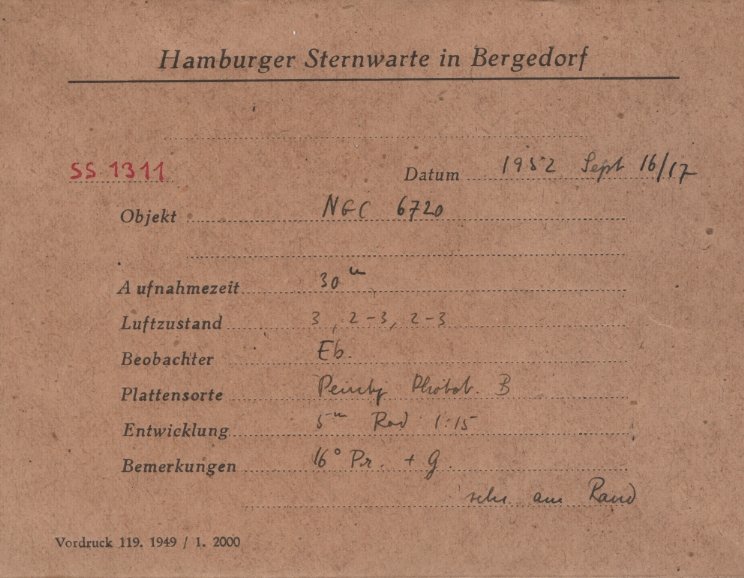 Hamburger Sternwarte in Bergedorf
SS 1311
Datum 1952 Sept 16/17
Objekt NGC 6720
Aufnahmezeit 30 m
Luftzustand 3, 2-3, 2-3
Beobachter Eb.
Plattensorte Perutz Photot. B
Entwicklung 5 m Rod 1:15
Bemerkungen 16° Pr. + G.
sehr am Rand
Vordruck 119. 1949 / 1. 2000